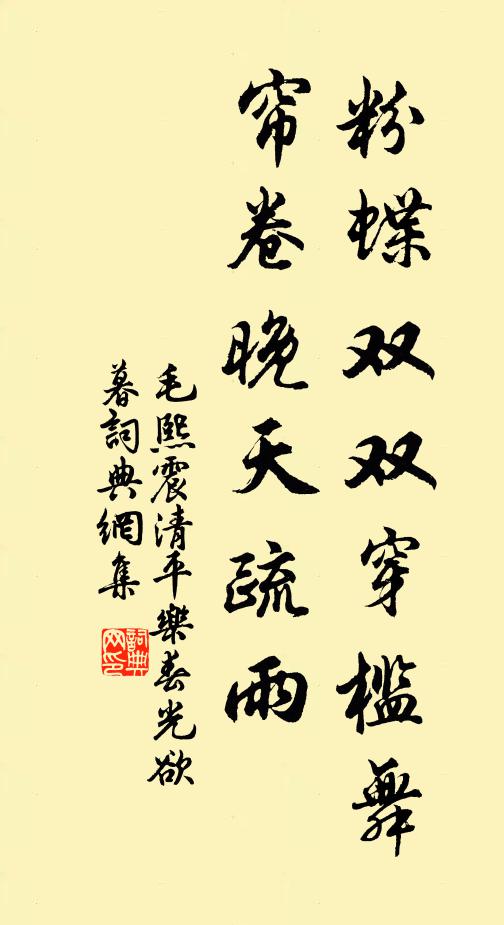 粉蝶双双穿槛舞
帘卷晚天疏雨
毛熙震清平樂春光欲
暮詞典網集
詞典网印